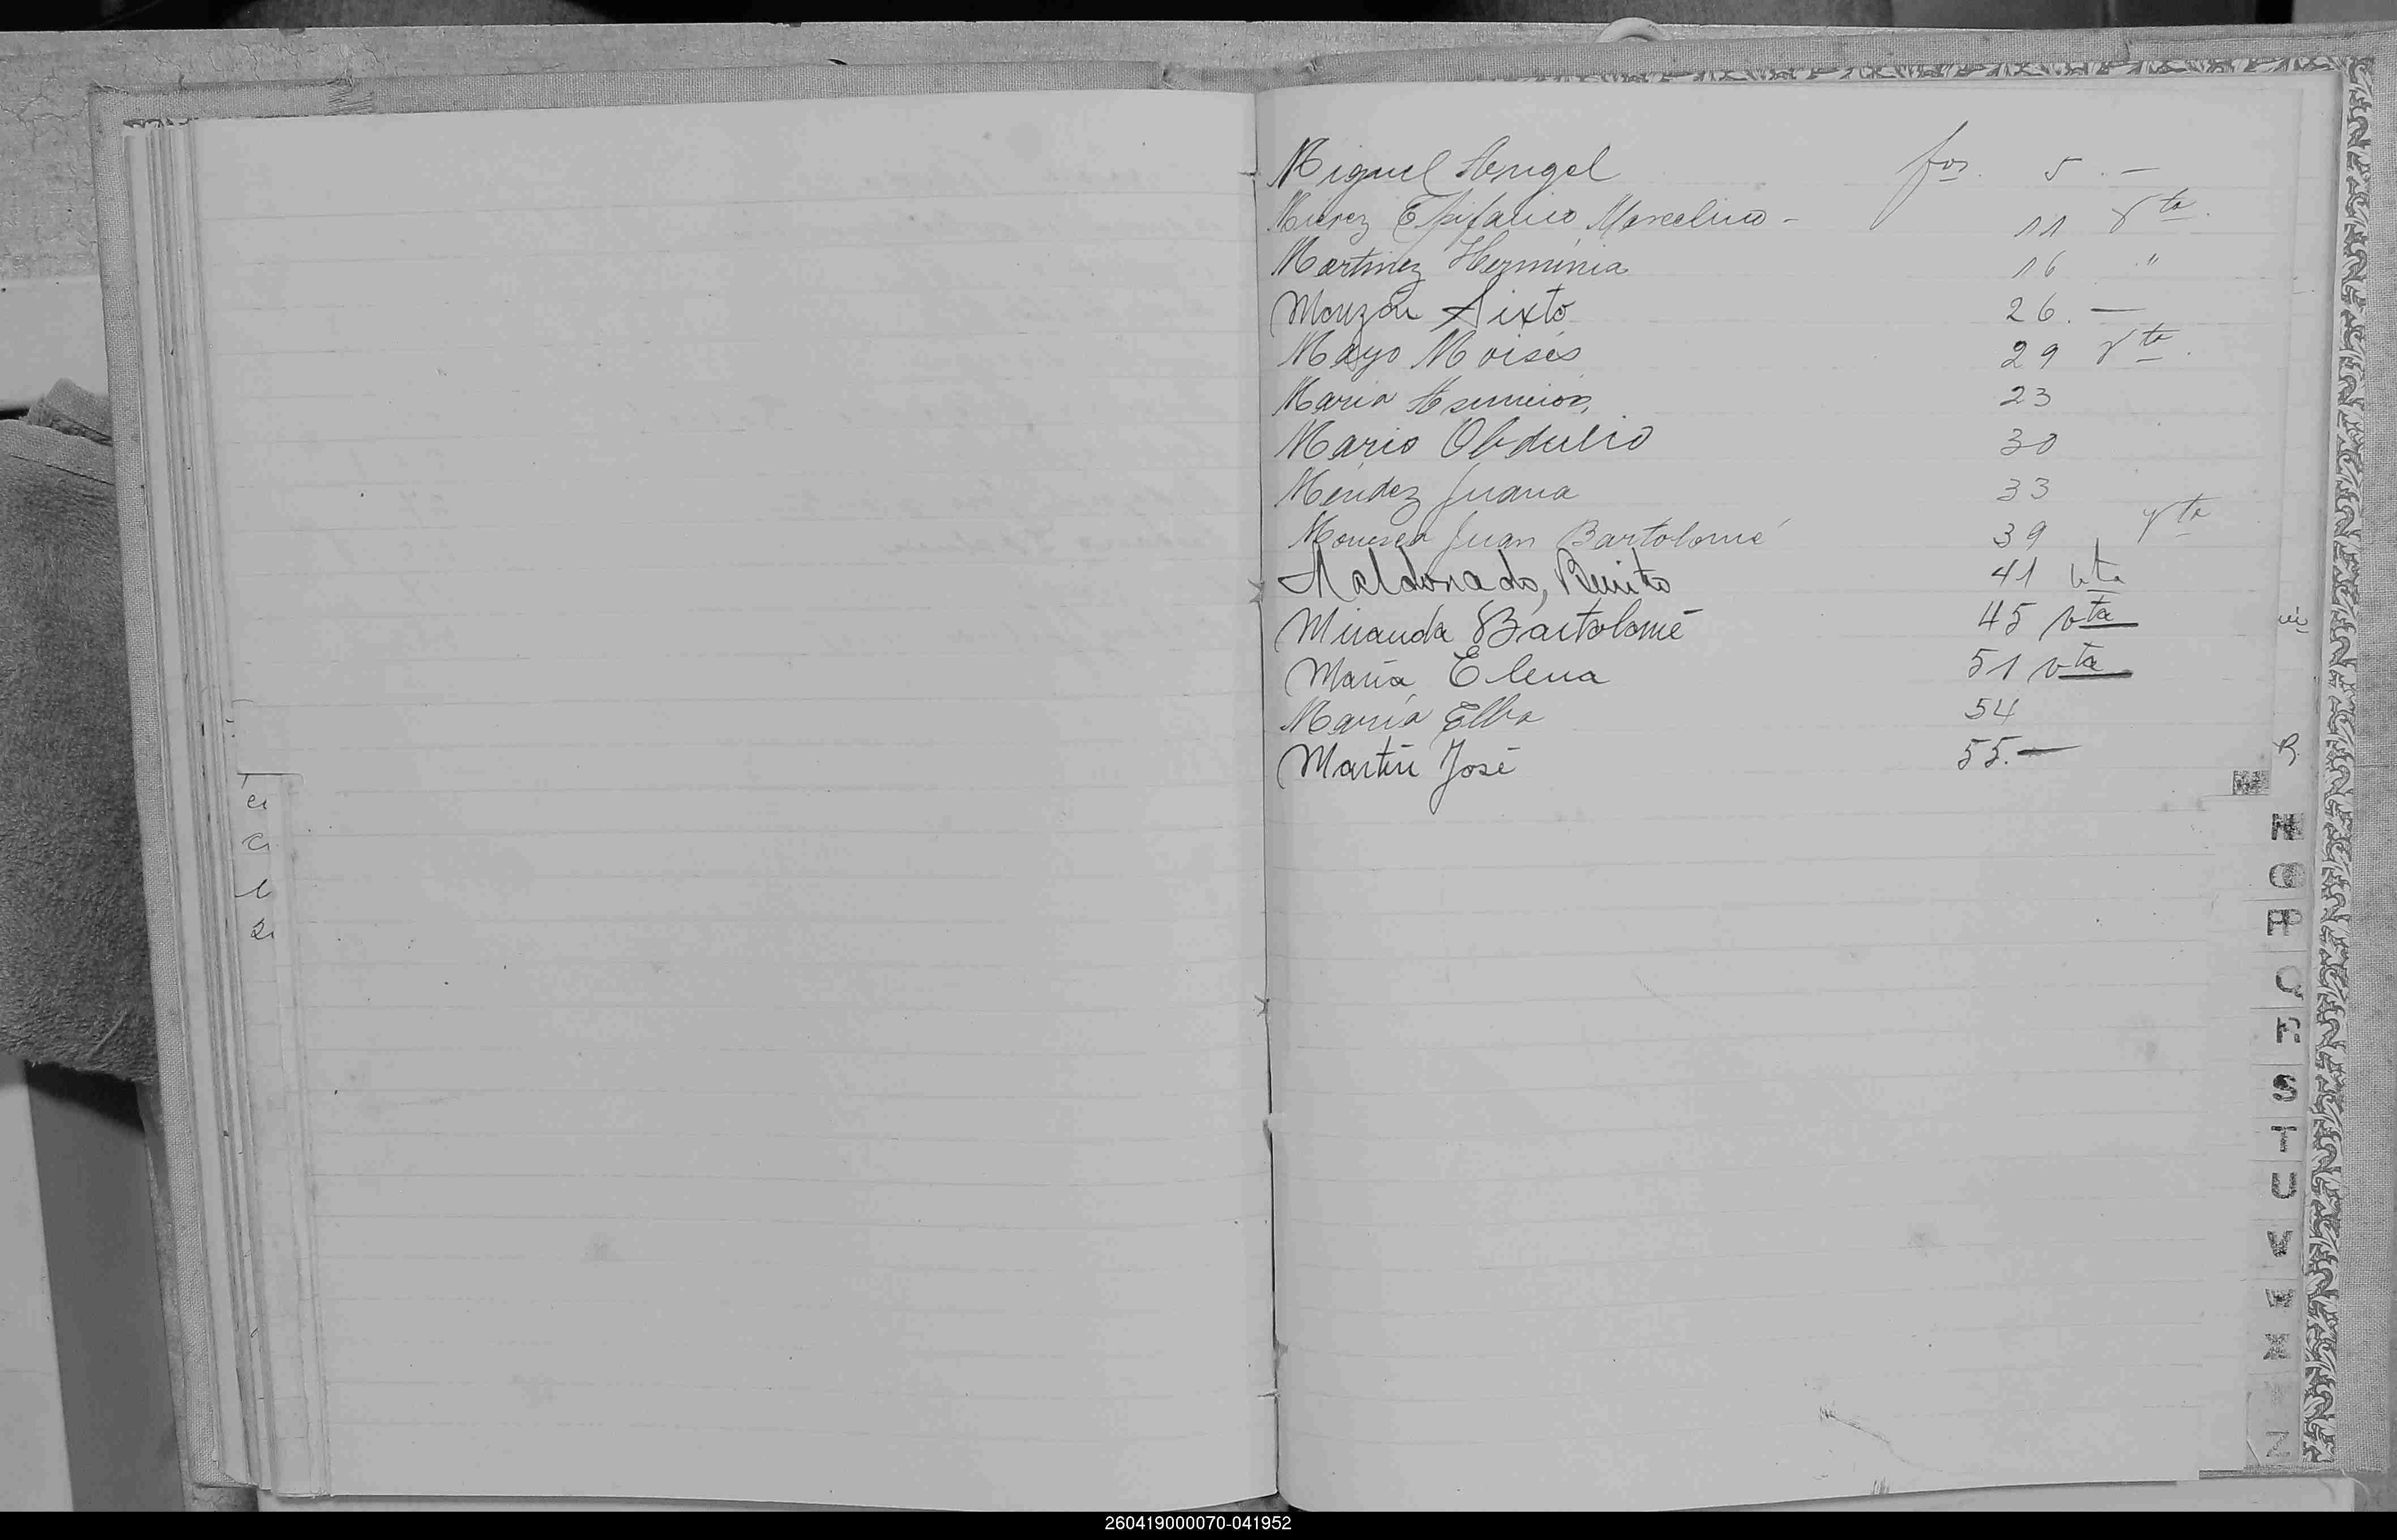 Miguel Angel fos. 5. —
Epifanio Marcelino - 11 vta.
Martinez Herminia 16 "
Monzón Sixto 26. —
Mayo Moisés 29 vta.
Maria Asunción, 23
Mario Obdulio 30
Méndez Juana 33
Juan Bartolomé 39 vta
Maldonado, Benito 41 vta
Miranda Bartolomé 45 vta
María Elena 51 vta
María Elba 54
Martín José 55. —
M
N
O
P
Q
R
S
T
U
V
W
X
Z
260419000070-041952